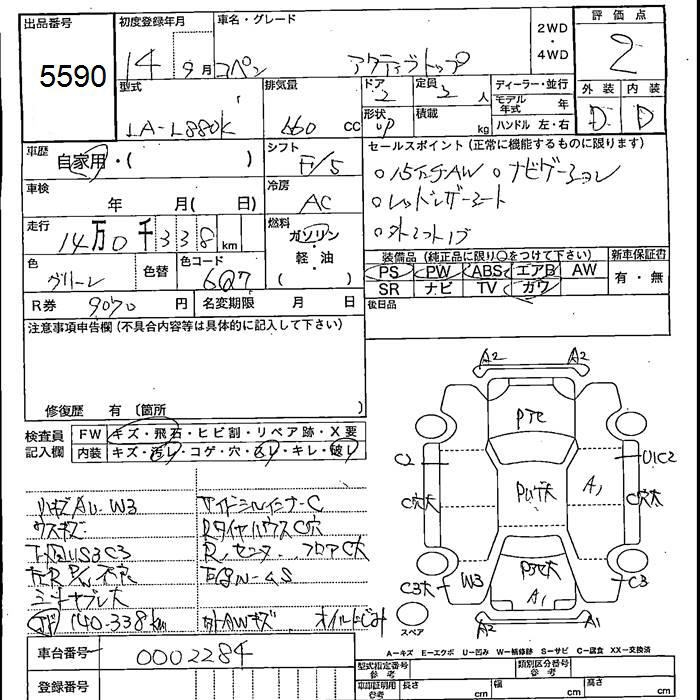 出品番号
5590
初度登録年月
14 年 9月
車名・グレード
コペン アクティブトップ
2WD
・
4WD
評価点
2
外装 内装
D D
型式
LA-L880K
排気量
660 cc
ドア
2
定員
2 人
形状
積載
kg
ディーラー・並行
モデル年式 年
ハンドル 左・右
車歴
自家用・( )
シフト
F/5
車検
年 月( 日)
冷房
AC
走行
14万0千338km
燃料
ガソリン
・
軽・油
( )
色
グリーン
色替
色コード
6Q7
R券 9070 円
名変期限 月 日
セールスポイント(正常に機能するものに限ります)
○15インチAW ○ナビゲーション
○レッドレザーシート
装備品(純正品に限り○をつけて下さい)
PS PW ABS エアB AW
SR ナビ TV カワ
新車保証書
有・無
後日品
注意事項申告欄(不具合内容等は具体的に記入して下さい)
修復歴 有 〔箇所
検査員
記入欄
FW キズ・飛石・ヒビ割・リペア跡・X要
内装 キズ・汚レ・コゲ・穴・スレ・キレ・破レ
W3
サイドシルインナーC
ウスキズ
RタイヤハウスC穴
S3C3
Rセンターフロア C大
140-338km
外AWキズ オイルにじみ
A2 A2
C2
U1C2
C穴大
A1
C穴大
C3大
W3
C3
A1
A2 A1
スペア
A-キズ E-エクボ U-凹み W-補修跡 S-サビ C-腐食 XX-交換済
車台番号
0002284
登録番号
型式指定番号
参考
類別区分番号
参考
車庫証明用
参考
長さ cm
幅 cm
高さ cm